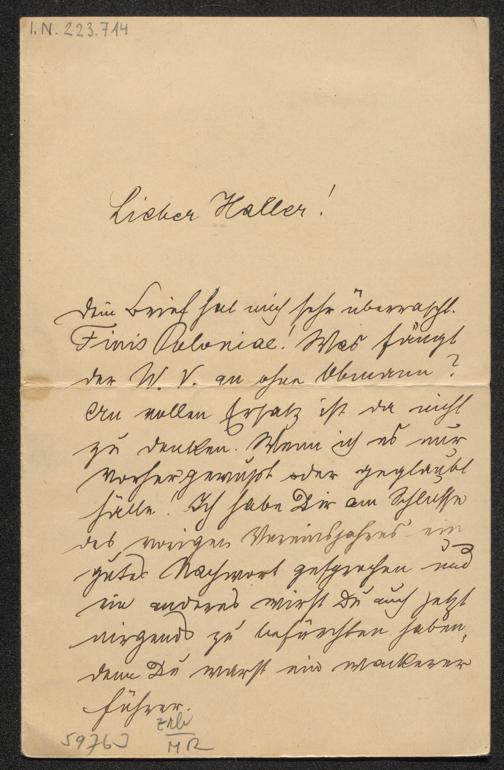 I.N. 223.714
Lieber Haller!
Dein Brief hat mich sehr überrascht.
Finis Poloniae! Was fängt
der W. V. an ohne Obmann?
An vollen Ersatz ist da nicht
zu denken. Wenn ich es nur
vorher gewußt oder geglaubt
hätte. Ich habe Dir am Schlusse
des vorigen Vereinsjahres ein
gutes Nachwort gesprochen und
ein anderes wirst Du auch jetzt
nirgends zu befürchten haben,
denn Du warst ein wackerer
Führer.